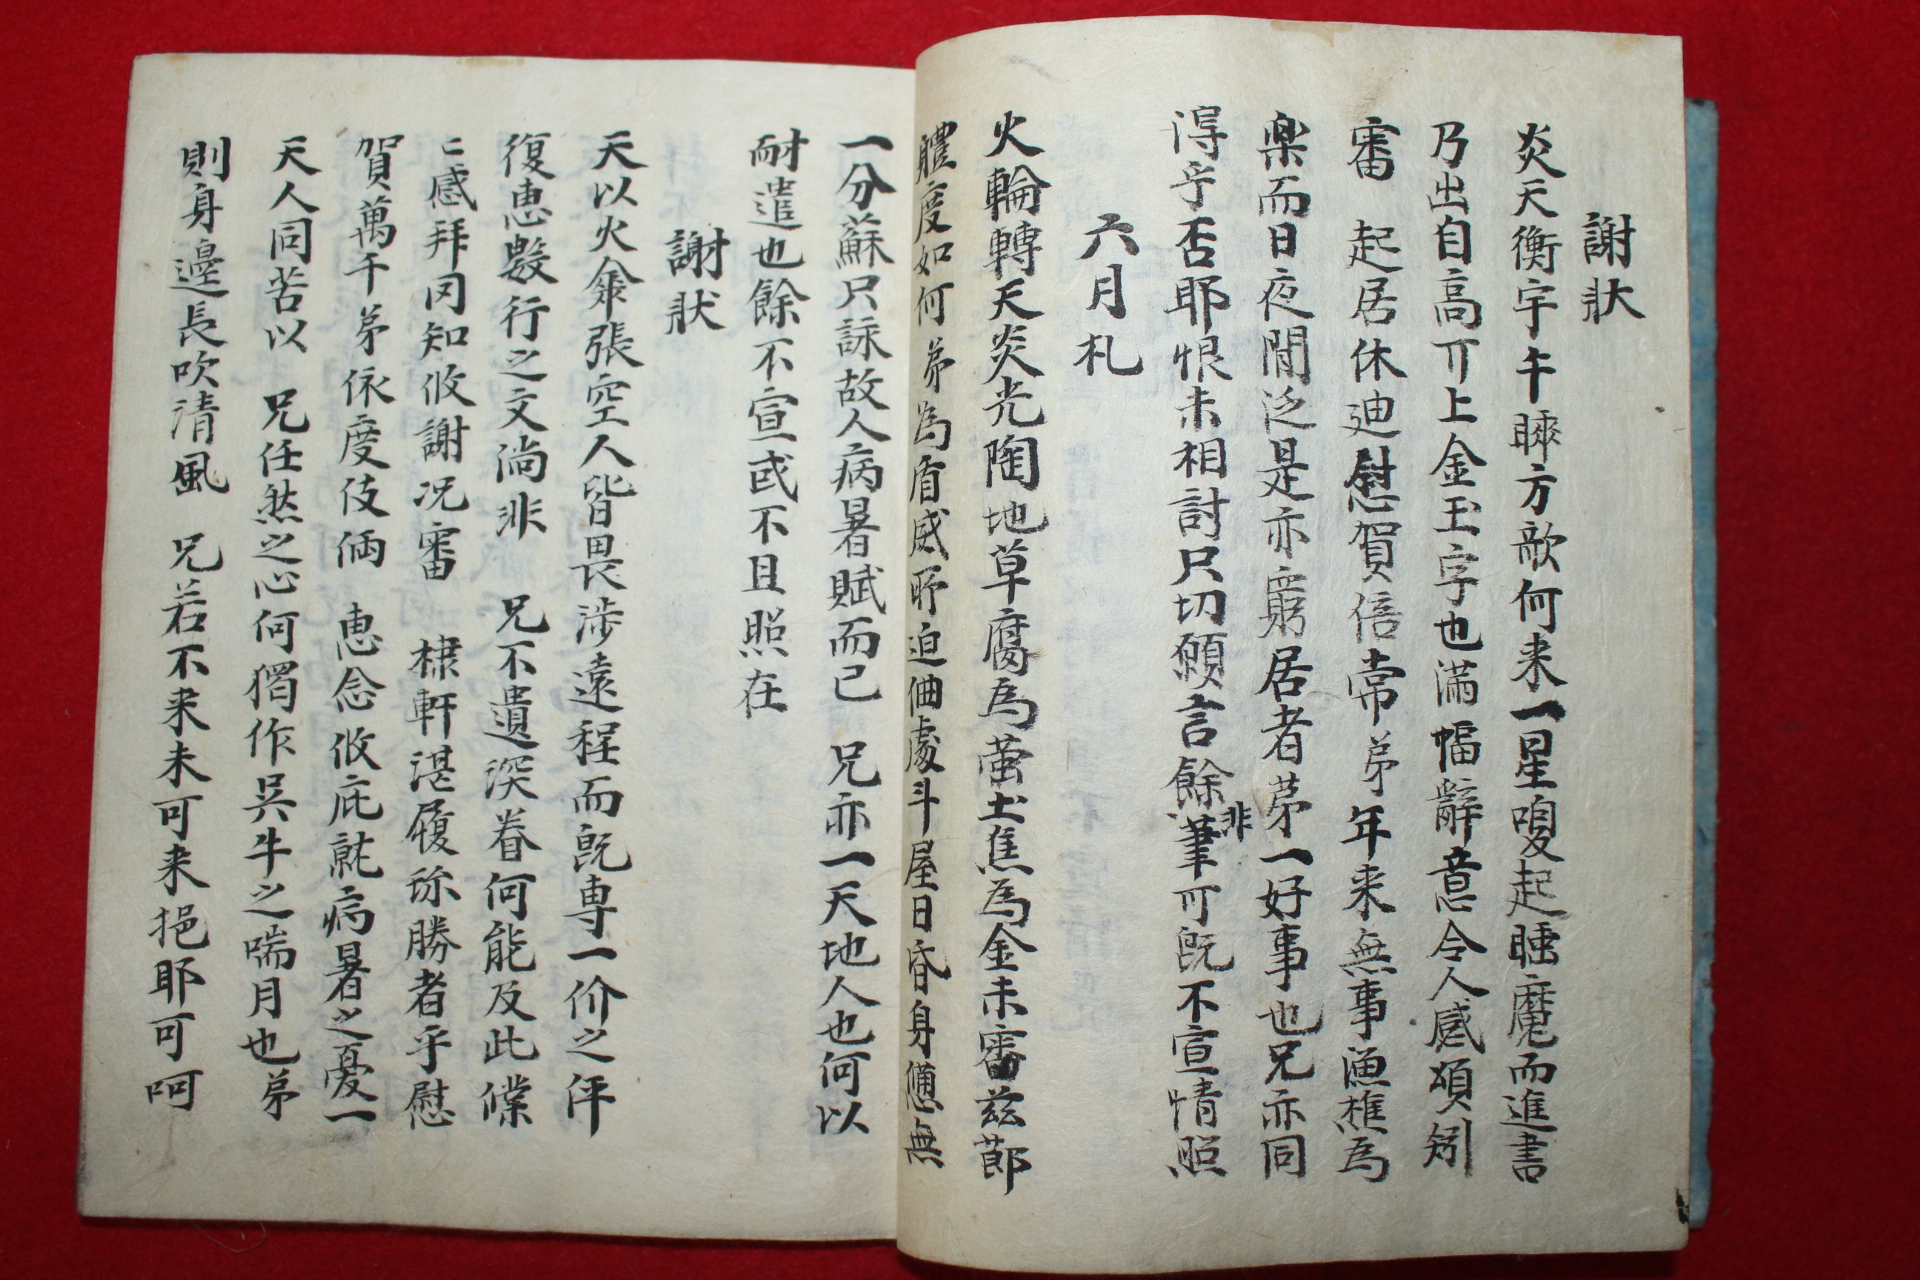 謝狀
炎天衡宇午睡方歇何来一星嗄起睡魔而進書
乃出自高丌上金玉字也滿幅辭意令人感頌矧
審 起居休迪慰賀倍常弟年来無事漁樵為
楽而日夜閒泛是亦窮居者苐一好事也兄亦同
得乎否耶恨未相討只切願言餘非筆可旣不宣情照
六月札
火輪轉天炎光陶地草腐為萤土焦為金未審茲節
軆度如何弟為盾威所迫佃處斗屋日昏身憊無
一分蘇只詠故人病暑賦而已 兄亦一天地人也何以
耐遣也餘不宣式不且照在
謝狀
天以火傘張空人皆畏涉遠程而旣專一价之伻
復惠數行之文淌非 兄不遺深眷何能及此儻
〻感拜罔知攸謝况審 棣軒湛履珎勝者乎慰
賀萬千弟依度伎倆 惠念攸庇就病暑之憂一
天人同苦以 兄任煞之心何獨作吳牛之喘月也弟
則身邊長吹清風 兄若不来未可来挹耶可呵